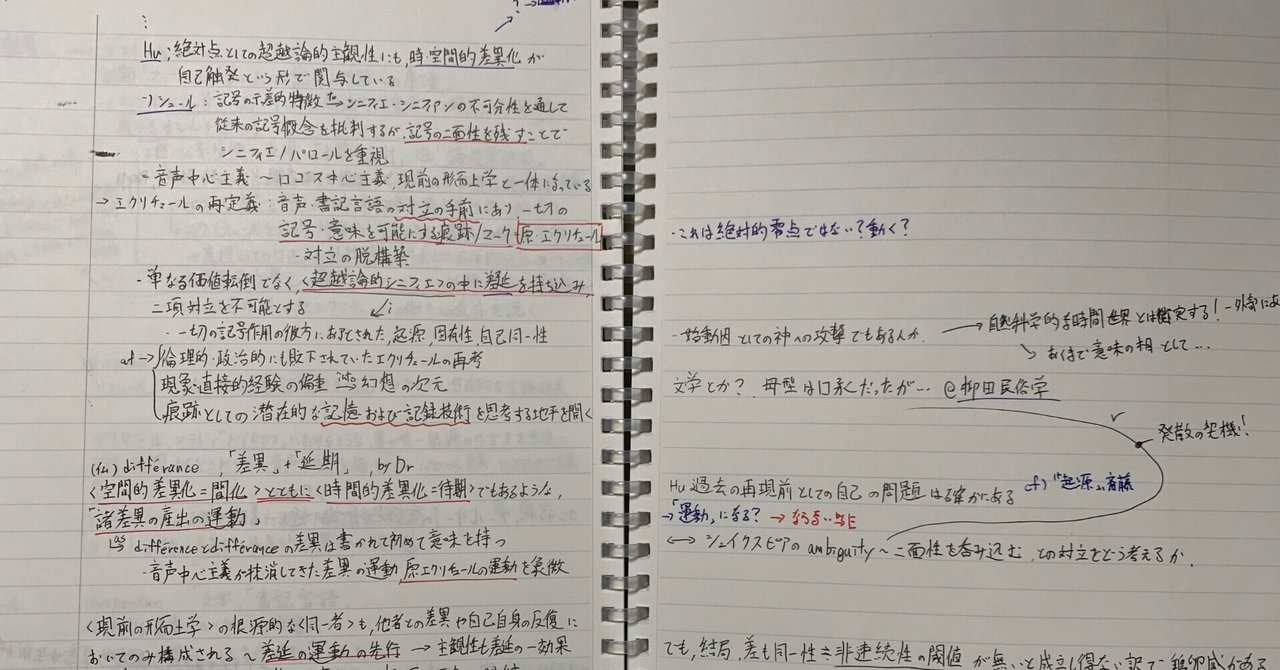 Hu;絶対点としての超越論的主観性にも,時-空間的差異化が
自己触発という形で関与している
ソシュール:記号の示差的特徴 シニフィエ・シニフィアンの不可分性を通して
従来の記号概念を批判するが,記号の二面性を残すことで
シニフィエ/パロールを重視
・音声中心主義〜ロゴス中心主義,現前の形而上学と一体になっている
→エクリチュールの再定義:音声・書記言語の対立の手前にあり,一切の
記号・意味を可能にする痕跡/マーク 原-エクリチュール
-対立の脱構築
・単なる価値転倒でなく,<超越論的シニフィエ>の中に差延を持ち込み,
二項対立を不可能とする
・一切の記号作用の彼方にあるとされた,起源,固有性,自己同一性
→倫理的・政治的にも貶下されていたエクリチュールの再考
現象・直接的経験の偏重 幻想の次元
痕跡としての潜在的な記憶および記録技術を思考する地平を開く
(仏)différance,「差異」+「延期」, by Dr
<空間的差異化=間化>とともに<時間的差異化=待期>でもあるような,
「諸差異の産出の運動」
différenceとdifféranceの差異は書かれて初めて意味を持つ
・音声中心主義が抹消してきた差異の運動,原エクリチュールの運動を象徴
<現前の形而上学>の根源的な<同一者>も,他者との差異や自己自身の反復に
おいてのみ構成される〜差延の運動の先行→主観性も差延の一効果
・これは絶対的零点ではない?動く?
・始動因としての神への攻撃でもあるんか.
→自然科学的な時間世界とは衝突する!
あくまで意味の相として…
文学とか? 母型は口承だったが… @柳田民俗学
発散の契機!
Hu 過去の再現前としての自己の問題は確かにある
cf)『起源』斎藤
→「運動」になる?→ならない
⟷シェイクスピアのambiguity〜二面性を呑み込む,との対立をどう考えるか.
でも,結局,差も同一性≒非連続性の閾値が無いと成立し得ない訳で